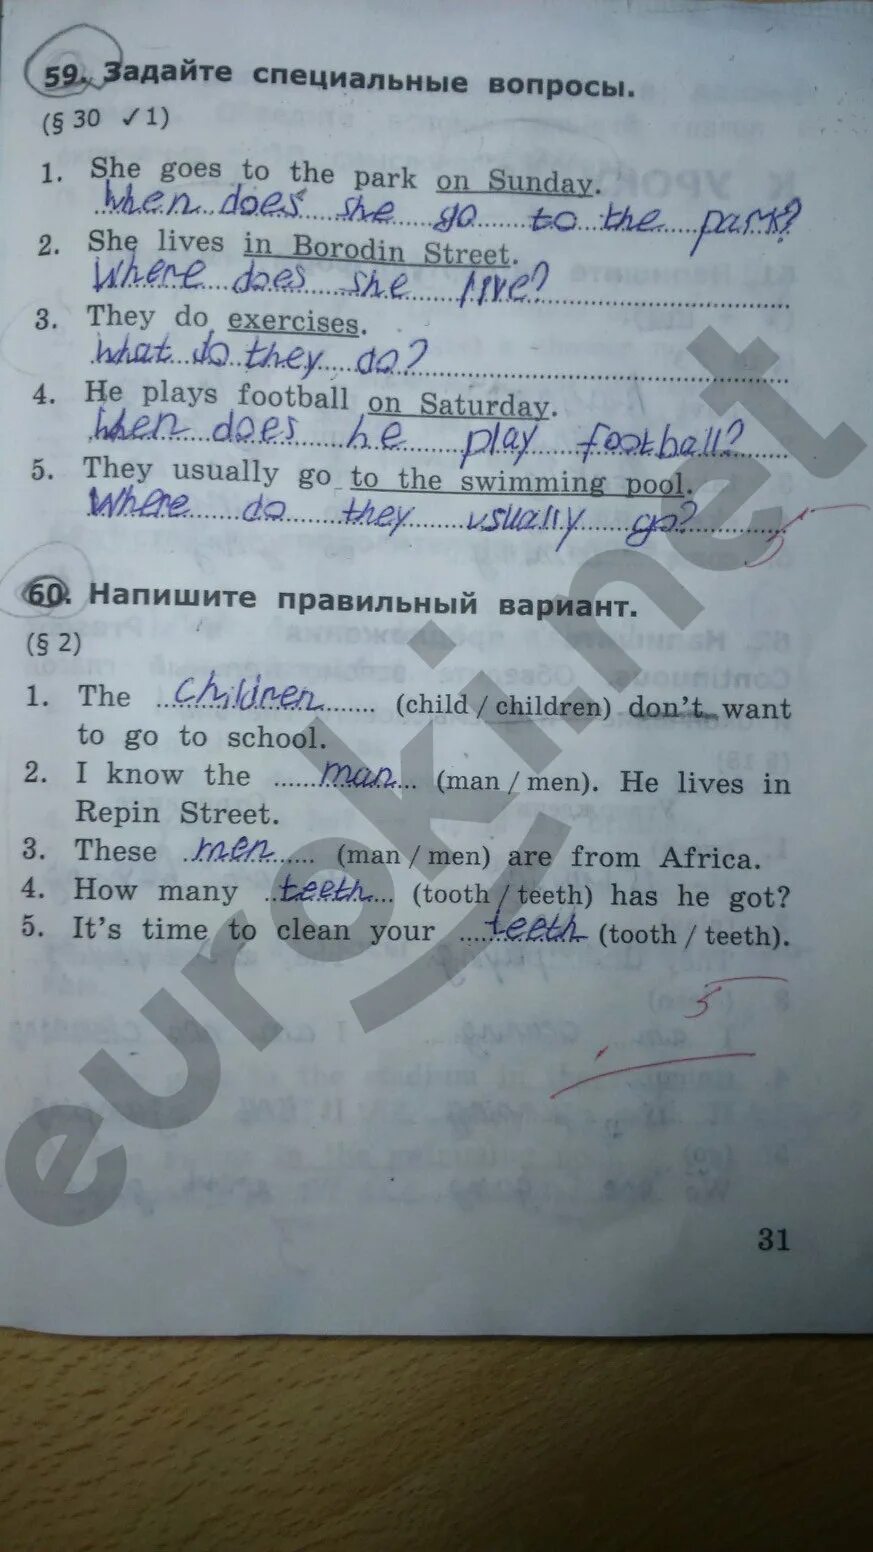 59. Задайте специальные вопросы.
(§ 30 ✓ 1)
1. She goes to the park on Sunday.
When does she go to the park?
2. She lives in Borodin Street.
Where does she live?
3. They do exercises.
What do they do?
4. He plays football on Saturday.
When does he play football?
5. They usually go to the swimming pool.
Where do they usually go?
5
60. Напишите правильный вариант.
(§ 2)
1. The children (child / children) don't want
to go to school.
2. I know the man (man / men). He lives in
Repin Street.
3. These men (man / men) are from Africa.
4. How many teeth (tooth / teeth) has he got?
5. It's time to clean your teeth (tooth / teeth).
5
31
euroki.net